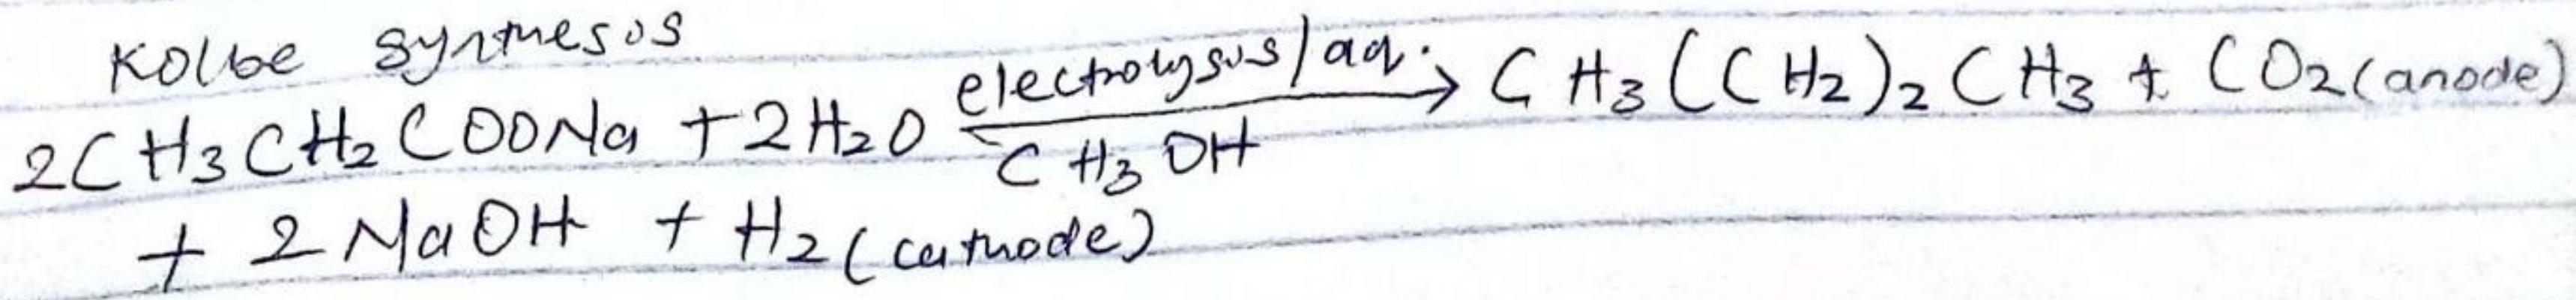 Kolbe synthesis
2CH₃CH₂COONa + 2H₂O electrolysis/aq. CH₃OH → CH₃(CH₂)₂CH₃ + CO₂(anode)
+ 2NaOH + H₂(cathode)